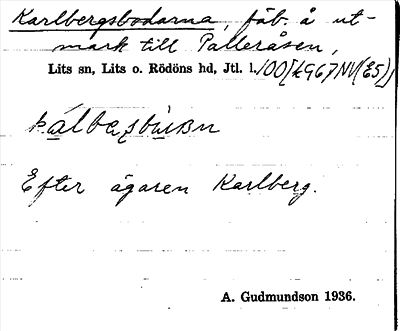 Karlbergsbodarna, fäb. å ut-
mark till Palleråsen,
Lits sn, Lits o. Rödöns hd, Jtl. l.
Efter ägaren Karlberg.
A. Gudmundson 1936.